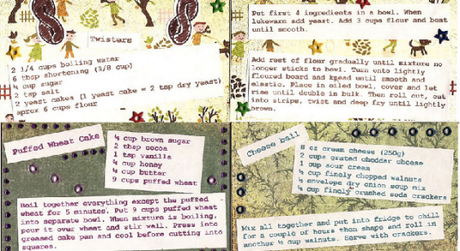 Twisters
2 1/4 cups boiling water
6 tbsp shortening (3/8 cup)
¼ cup sugar
2 tsp salt
2 yeast cakes (1 yeast cake = 2 tsp dry yeast)
aprox 6 cups flour
Put first 4 ingredients in a bowl. When
lukewarm add yeast. Add 3 cups flour and beat
until smooth.
Add rest of flour gradually until mixture no
longer sticks to bowl. Turn onto lightly
floured board and knead until smooth and
elastic. Place in oiled bowl, cover and let
rise until doubls in bulk. Then roll out, cut
into strips, twist and deep fry until lightly
brown.
Puffed Wheat Cake
½ cup brown sugar
2 tbsp cocoa
1 tsp vanilla
½ cup honey
¼ cup butter
9 cups puffed wheat
Boil together everything except the puffed
wheat for 5 minutes. Put 9 cups puffed wheat
into separate bowl. When mixture is boiling,
pour it over wheat and stir well. Press into
greased cake pan and cool before cutting into
squares.
Cheese Ball
8 oz cream cheese (250g)
2 cups grated cheddar cheese
½ cup sour cream
½ cup finely chopped walnuts
½ envelope dry onion soup mix
½ cup finely crushed soda crackers
Mix all together and put into fridge to chill
for a couple of hours then shape and roll in
another ½ cup walnuts. Serve with crackers.